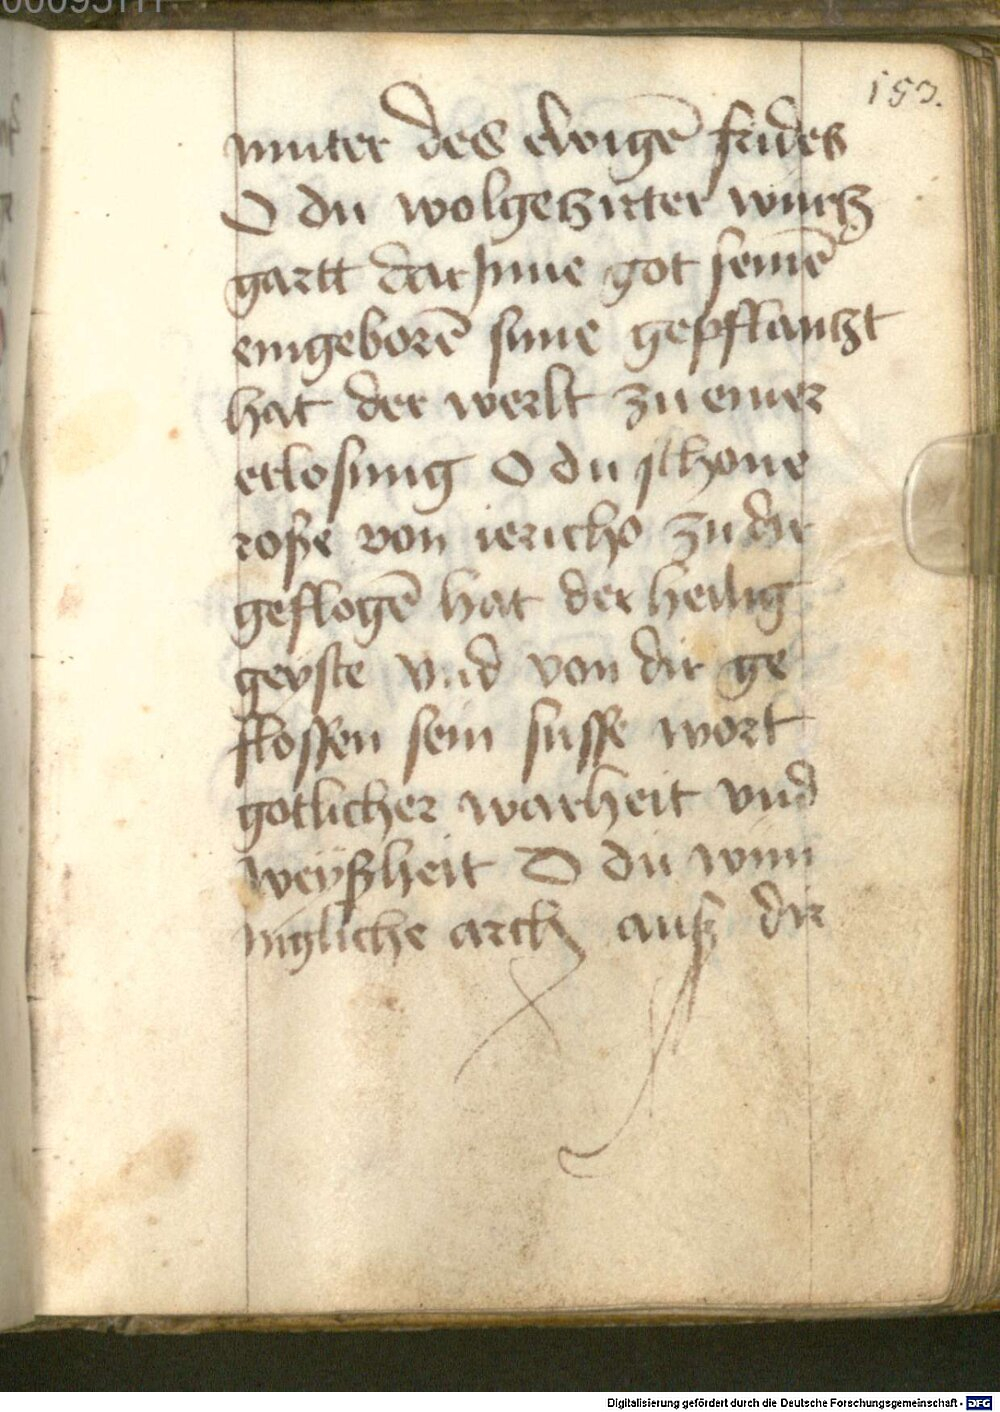 153.
muter des ewigē frides
O du wolgezirter wurtz
gartt dar Jnne got seinē
eingeborē sune gepflantzt
hat der werlt zu einer
erlosung O du schone
roße von iericho zu dir
geflogē hat der heilig
geyste vnd von dir ge
flossen sein susse wort
gotlicher warheit vnd
weyßheit O du wun
nigliche arch auß dir
Digitalisierung gefördert durch die Deutsche Forschungsgemeinschaft - DFG